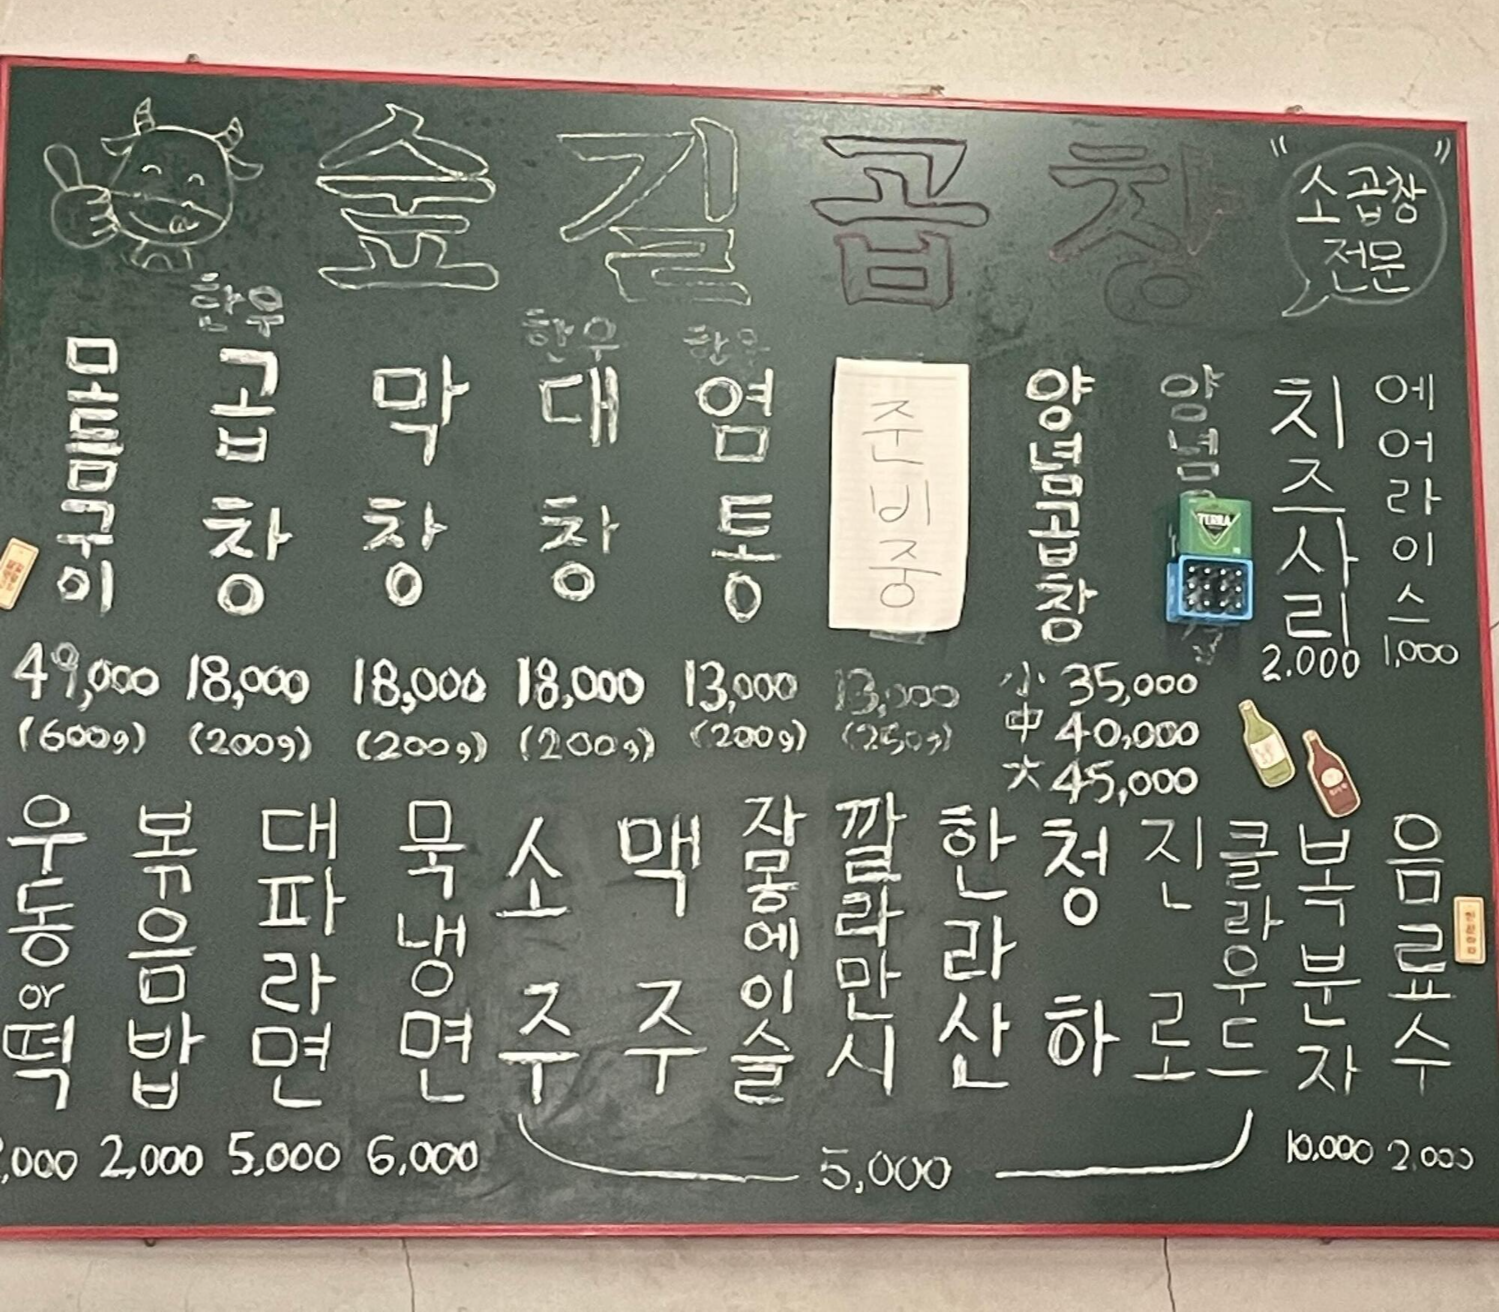 숲길곱창
"소곱창
전문"
모듬구이
49,000
(600g)
한우
곱창
18,000
(200g)
막창
18,000
(200g)
한우
대창
18,000
(200g)
한우
염통
13,000
(200g)
준비중
13,000
(250g)
양념곱창
小 35,000
中 40,000
大 45,000
양념
TERRA
치즈사리
2.000
에어라이스
1,000
우동or떡
,000
볶음밥
2,000
대파라면
5,000
묵냉면
6,000
소주
맥주
자몽에이슬
깔라만시
한라산
청하
진로
클라우드
5,000
복분자
10,000
음료수
2.000